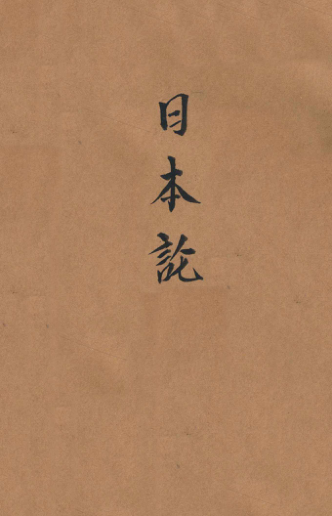 日本論